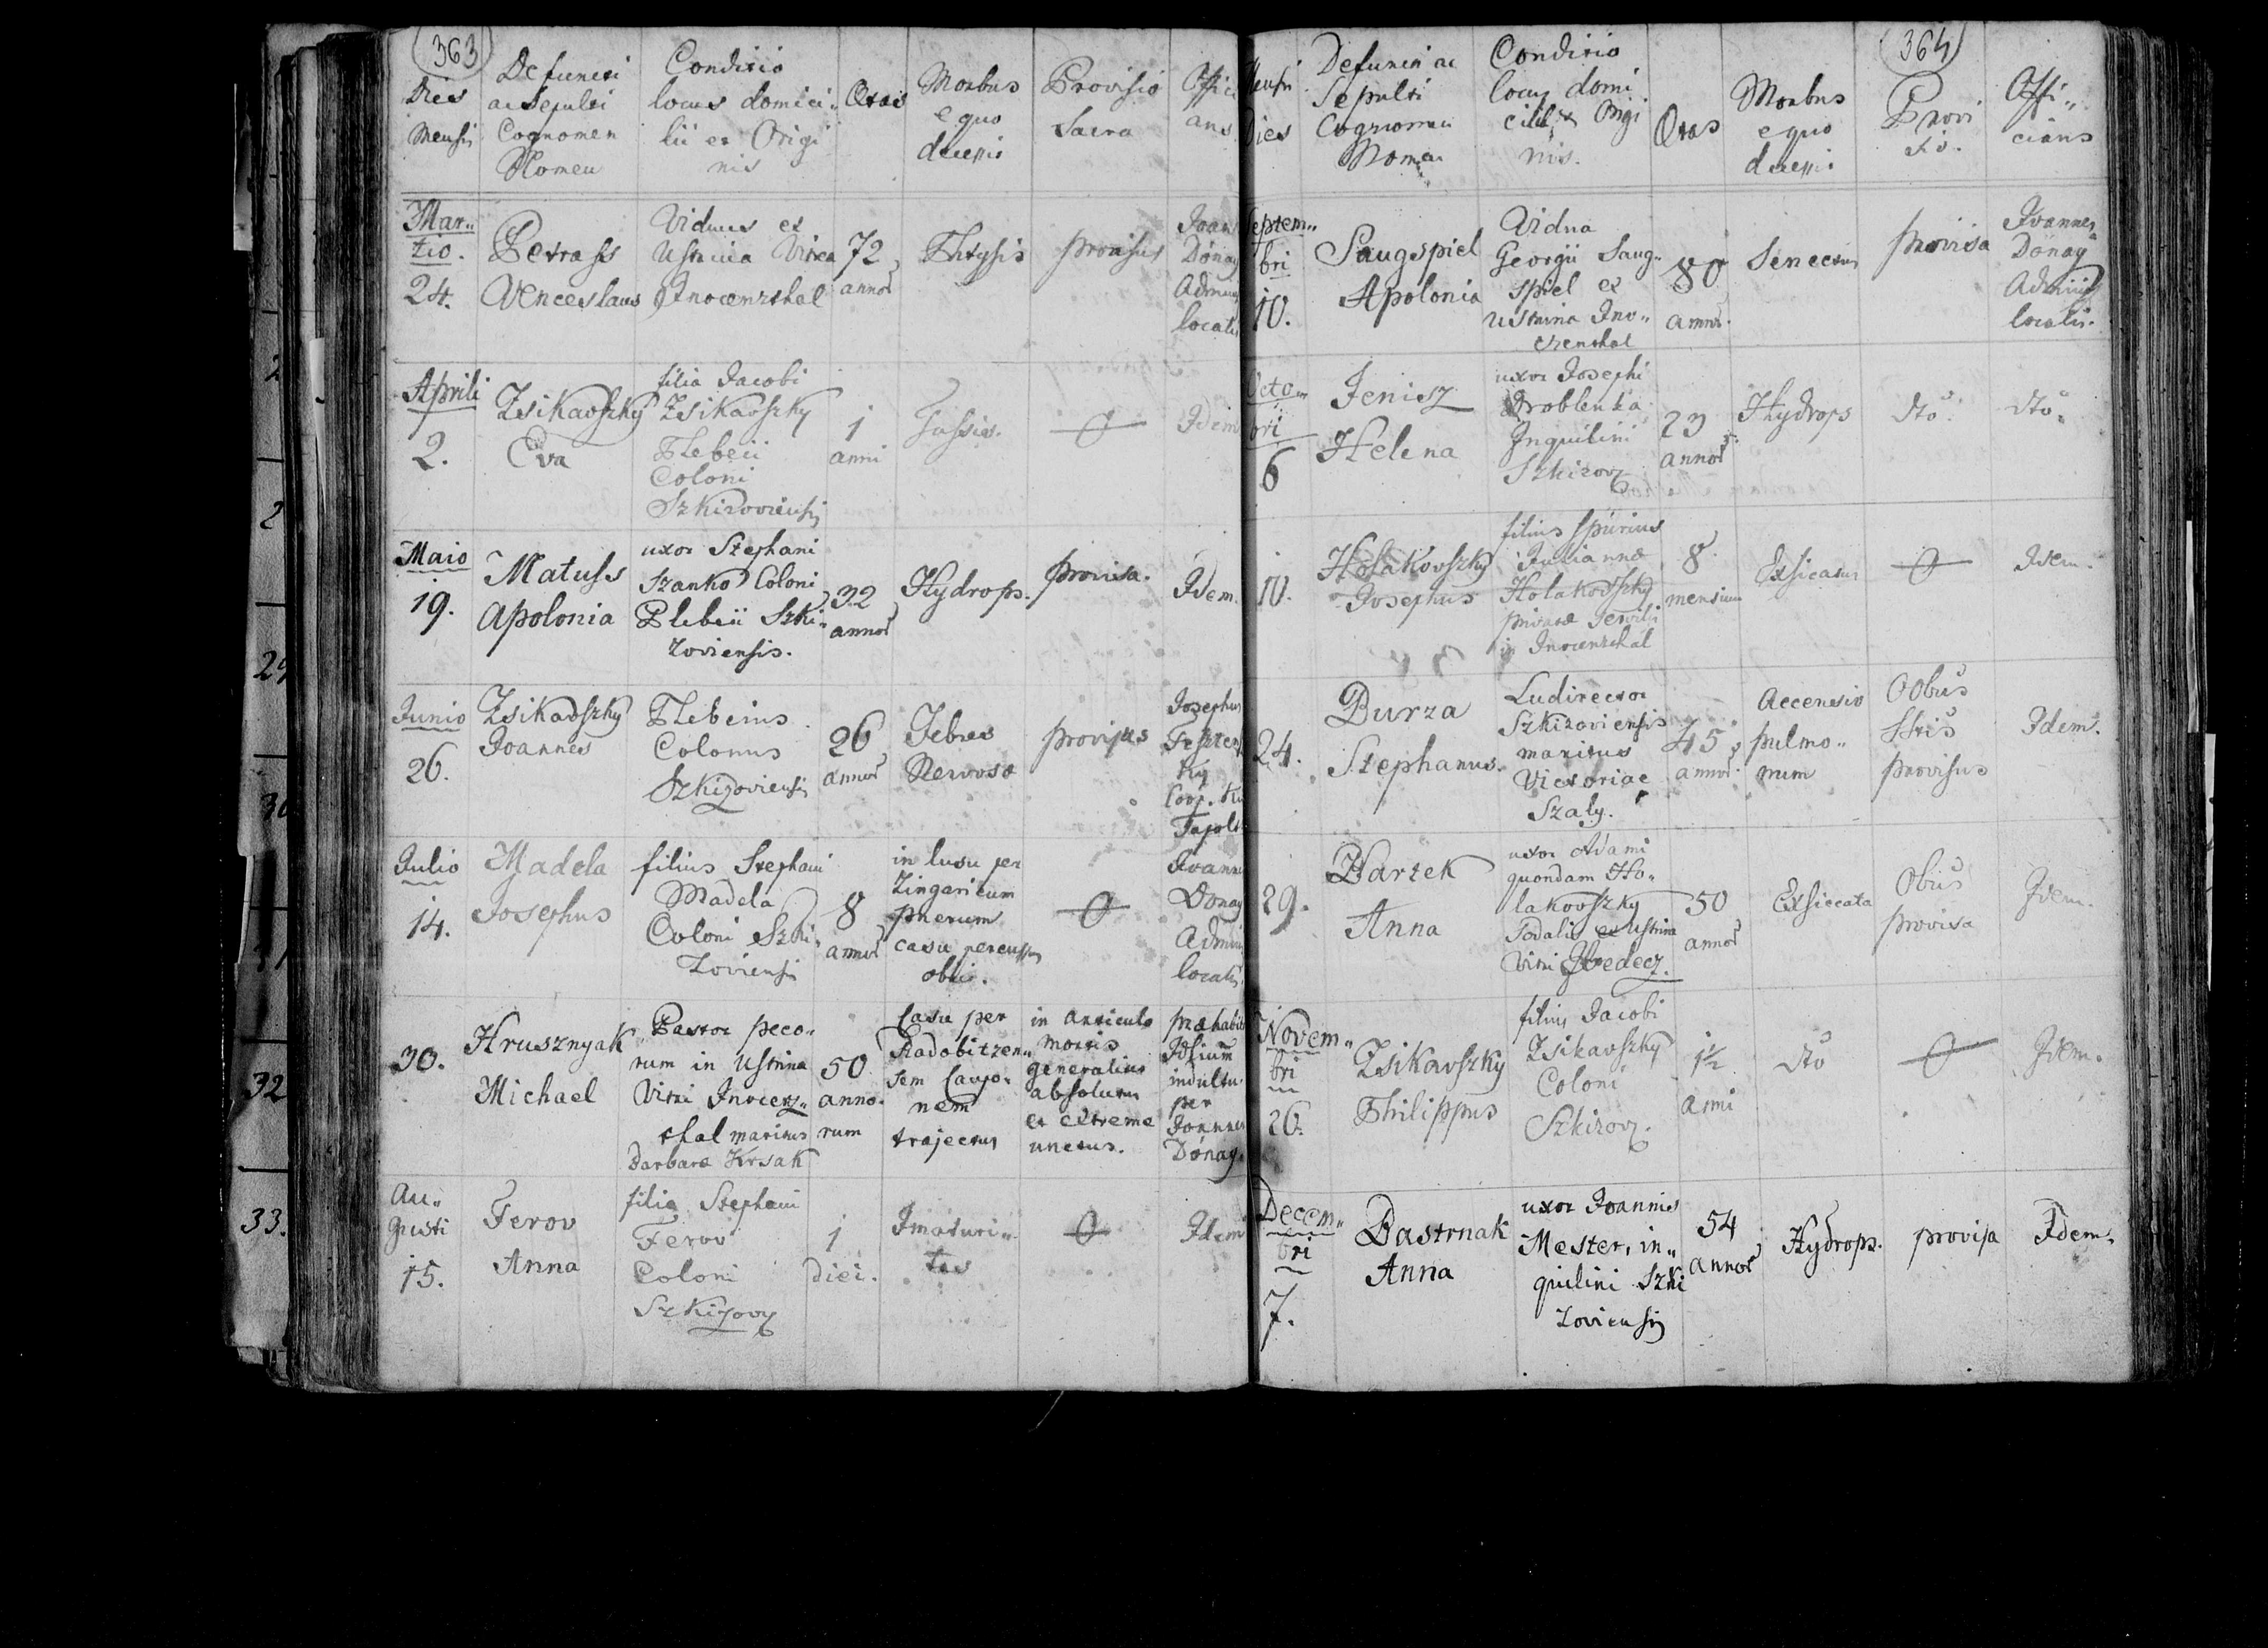 363
Dies
Mensis
Defuncti
ac Sepulti
Cognomen
Nomen
Conditio
locus domici„
lii et Origi
nis
Ætas
Morbus
e quo
decessit
Provisio
Sacra
Offici
ans
Mar„
tio.
24.
Petrass
Venceslaus
Viduus ex
Ustrina Vitrea
Inocenzthal
72
annor
Phtysis
provisus
Joan
Dónay
Admin
locatis
Aprili
2.
Zsikavszky
Eva
filia Jacobi
Zsikavszky
Plebeii
Coloni
Szkizoviensis
1
anni
Tussis.
0
Idem
Maio
19.
Matuss
Apolonia
uxor Stephani
Szanko Coloni
Plebeii Szki„
zoviensis.
32
annor
Hydrops.
provisa.
Idem.
Junio
26.
Zsikavszky
Joannes
Plebeius
Colonus
Szkizoviensis
26
annor
Febres
Nervosæ
provisus
Josephus
Coop.
Tapolt
Julio
14.
Madela
Josephus
filius Stephani
Madela
Coloni Szki„
zoviensis
8
annor
in lusu per
Zingaricum
puerum
casu percussus
obiit.
0
Joannes
Dónay
Admin
localis
30.
Hrusznyak
Michael
Pastor peco„
rum in Ustrina
Vitri Inocenz„
thal maritus
Barbaræ Krsak
50
anno„
rum
Casu per
Radobitzen„
sem Caupo„
nem
trajectus
in articulo
mortis
generalius
absolutus
et extreme
unctus.
præhabito
indultu
per
Joannes
Dónay.
Au„
gusti
15.
Ferov
Anna
filia Stephani
Ferov
Coloni
Szkizov
1
diei.
Imaturi„
tas
0
Idem
364
Mensis
Dies
Defuncti ac
Sepulti
Cognomen
Nomen
Conditio
locus domi
cilii et Origi
nis.
Ætas
Morbus
e quo
decessit
Provi
sio.
Offi„
cians
Septem„
bri
10.
Saugspiel
Apolonia
Vidua
Georgii Saug„
spiel ex
Ustrina Ino„
czenthal
80
annor.
Senectus
provisa
Joannes
Dónay
Admin
localis.
Octo„
bri
6
Jenisz
Helena
uxor Josephi
Droblenka
Inquilini
Szkizov
23
annor
Hydrops
dto
dto.
10.
Holakovszky
Josephus
filius spurius
Juliannæ
Holakovszky
privatæ Servilis
in Inocenzthal
8
mensium
Exsicatus
0
Idem.
24.
Burza
Stephanus.
Ludirector
Szkizoviensis
maritus
Victoriae
Szaly.
45
annor.
Accensio
pulmo„
num
Oobus
Sstis
provisus
Idem.
29.
Bartek
Anna
uxor Adami
quondam Ho„
lakovszky
Sodalis ex Ustrina
Vitri Hredecz.
50
annor
Exsiccata
Obus
provisa
Idem.
Novem„
bri
26.
Zsikavszky
Philippus
filius Jacobi
Zsikavszky
Coloni
Szkizov.
1½
anni
dto
0
Idem.
Decem„
bri
7.
Bastrnak
Anna
uxor Joannis
Mester, in„
quilini Szki
zoviensis
54
annor
Hydrops.
provisa
Idem.
2
2
29
30
31
32
33.